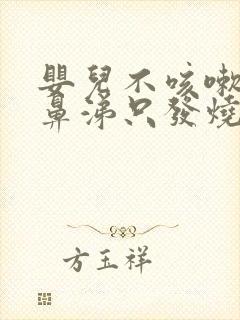 嬰兒不咳嗽
鼻涕只發燒
方玉祥